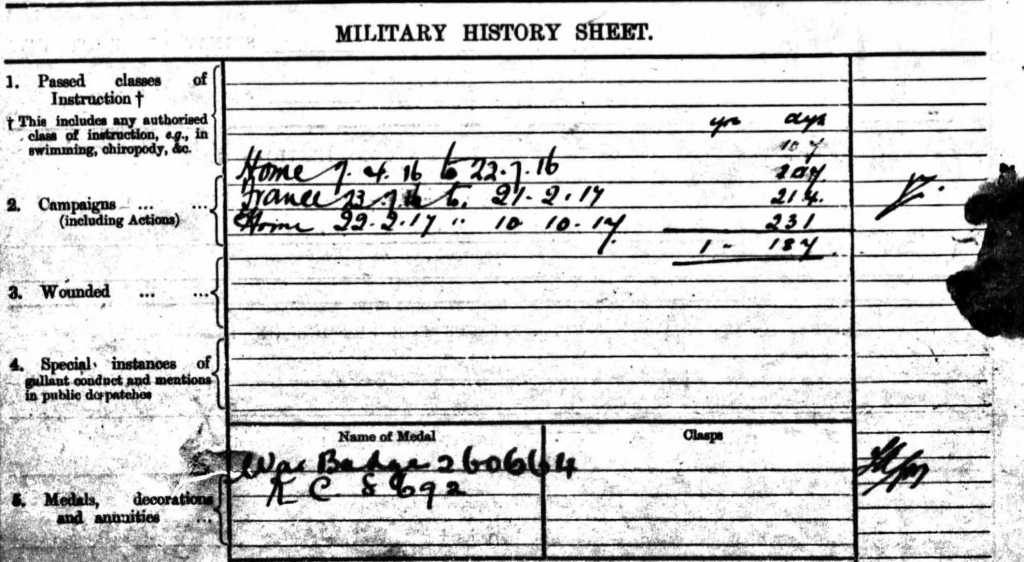 MILITARY HISTORY SHEET.
1. Passed classes of
Instruction †
† This includes any authorised
class of instruction, e.g., in
swimming, chiropody, &c.
yrs days
107
Home 7. 4. 16 to 22.7.16 107
France 23.7.16 to. 21-2.17 214.
2. Campaigns ... ...
(including Actions)
Home 22-2.17 " 10 10.17 231
1 - 187
3. Wounded ... ...
4. Special instances of
gallant conduct and mentions
in public despatches
Name of Medal Clasps
War Badge 260664
K C 8692
5. Medals, decorations
and annuities ...